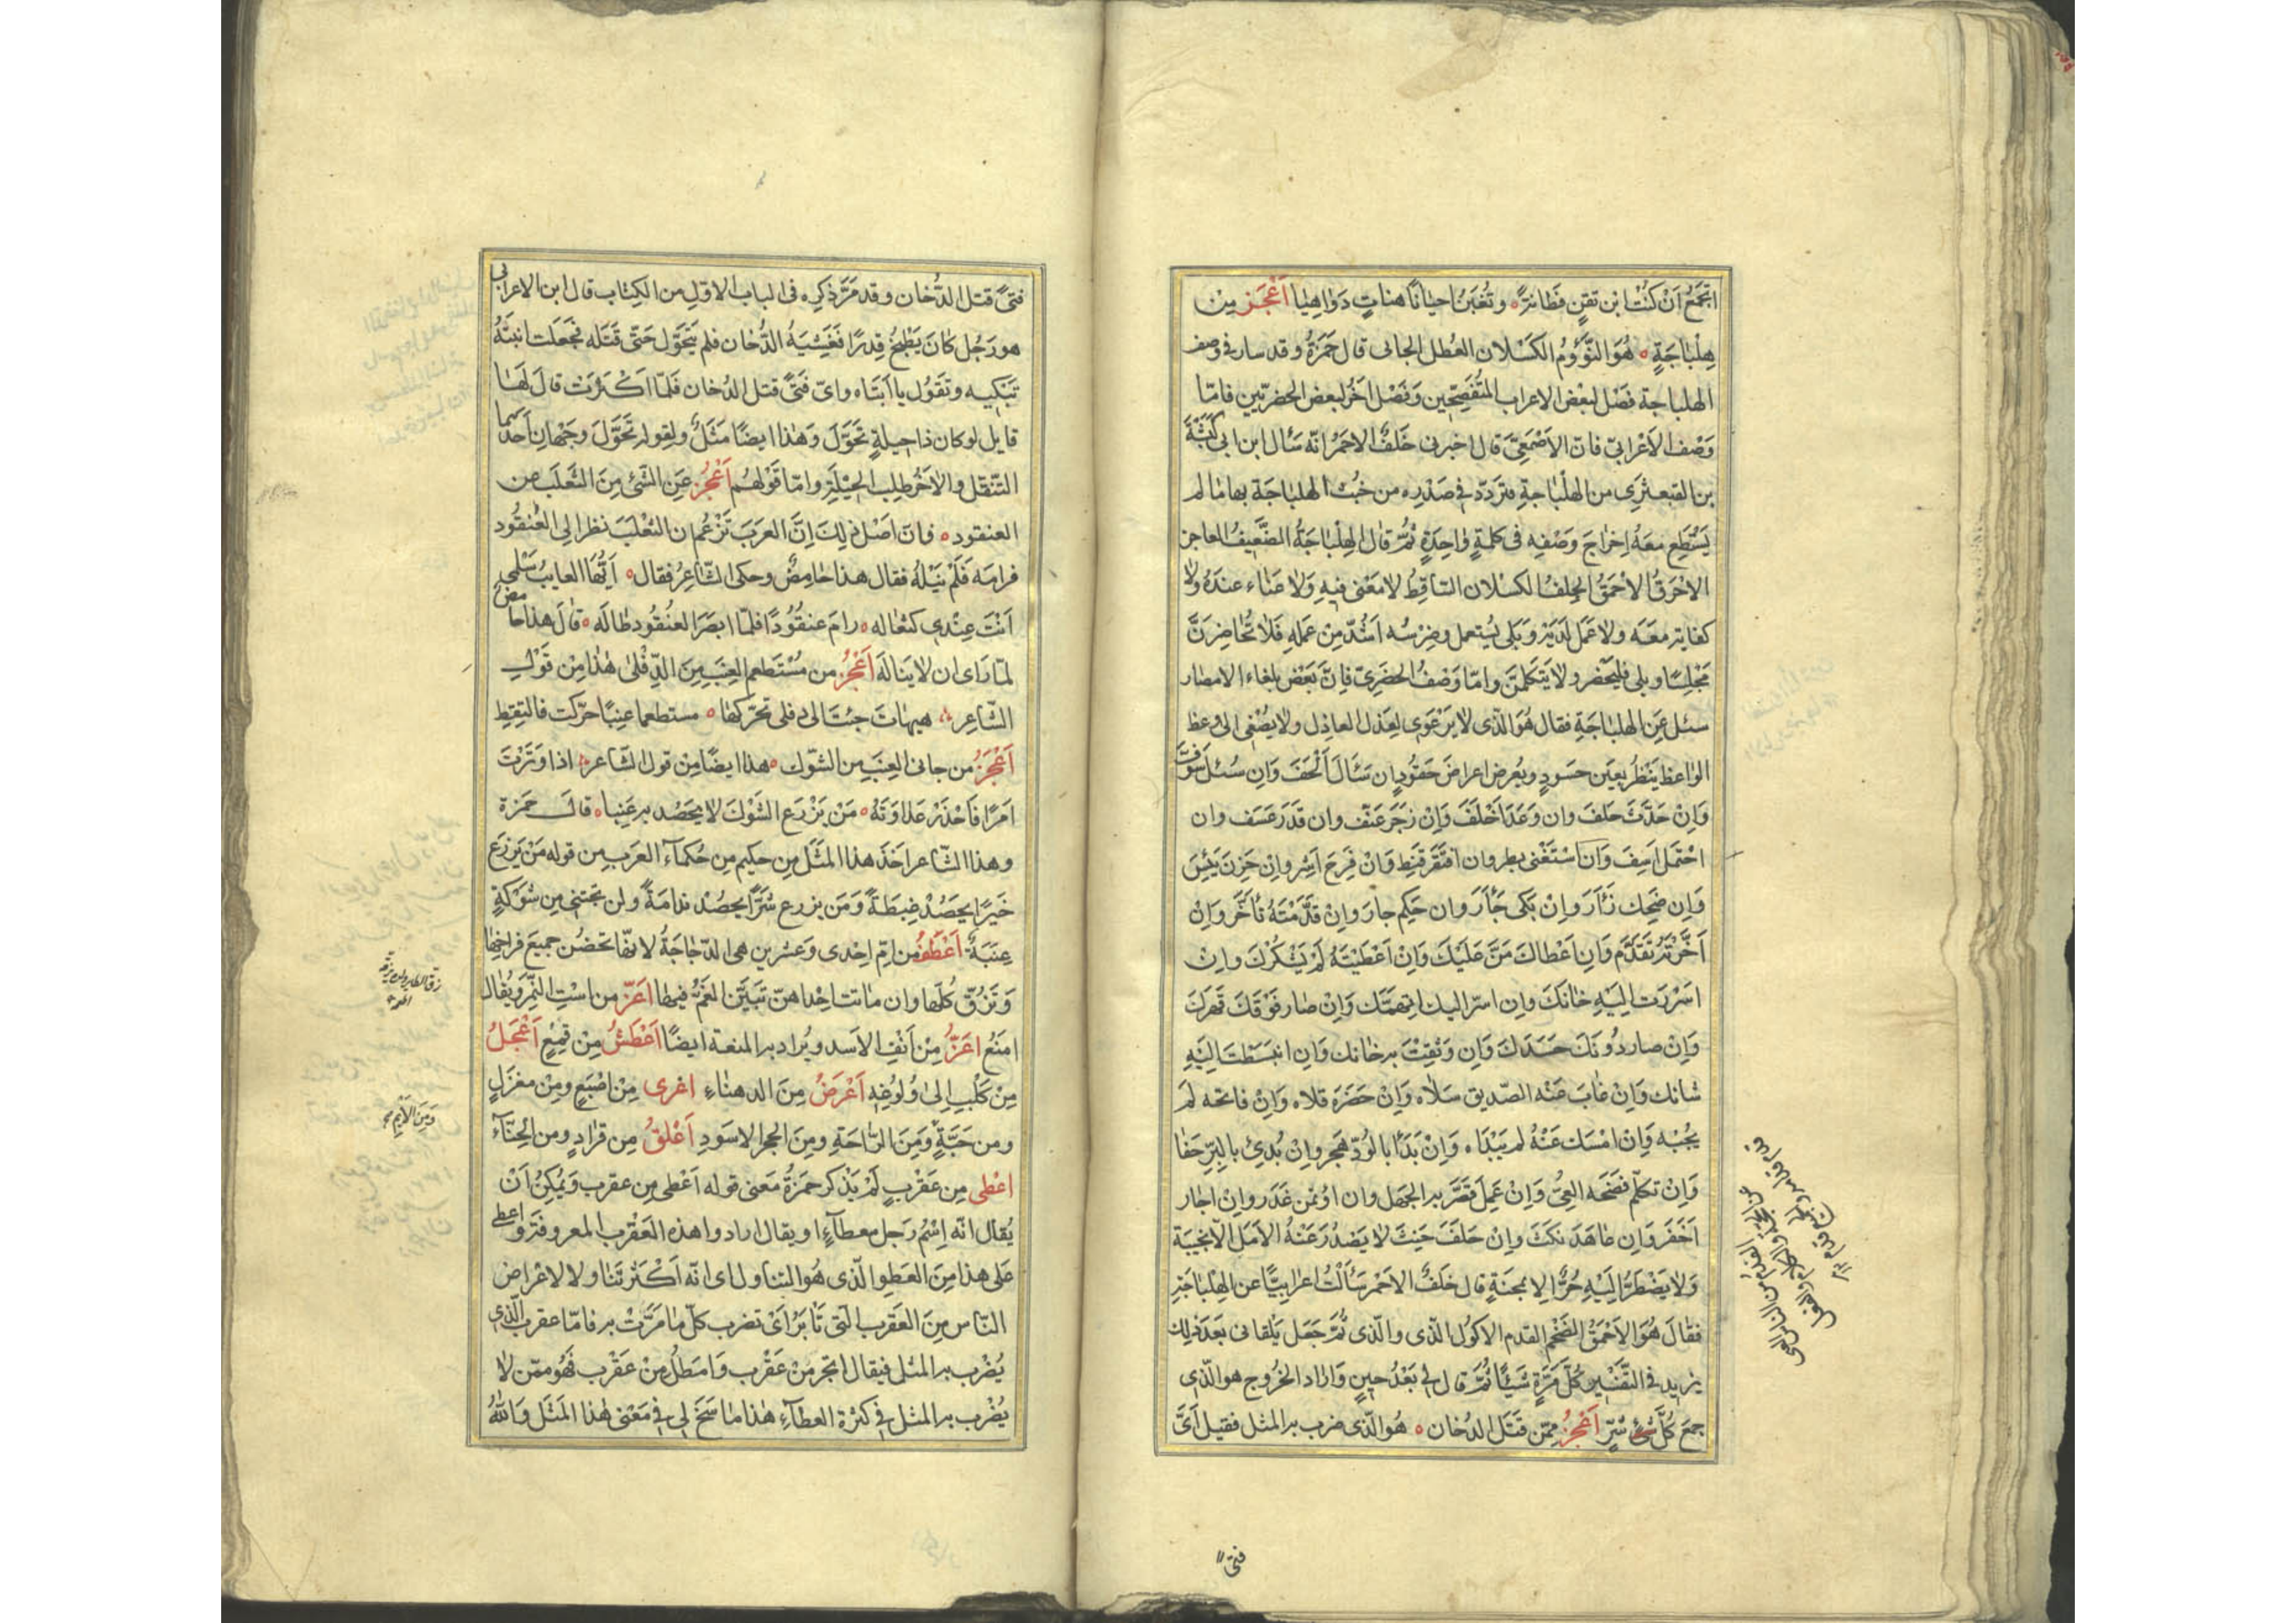 اتجمع ان كنت ابن تقن فطانة ه وتغبن احيانا هنات دواهيا اعجز من
هلباجة ه هو النؤوم الكسلان العطل الجافى قال حمزة وقد سار فى وصف
الهلباجة فصل لبعض الاعراب المتفصحين وفصل اخر لبعض الحضريين فامّا
وصف الاعرابىّ فانّ الاصمعىّ قال اخبرنى خلف الاحمر انّه سئال ابن ابى كبشة
بن القبعثرى من الهلباجة فتردّد فى صدره من خبث الهلباجة بها ما لم
يستطع معه اخراج وصفه فى كلمة واحدة ثمّ قال الهلباجة الضعيف العاجز
الاخرق الاحمق الجلف الكسلان الساقط لا معنى فيه ولا غناء عنده ولا
كفاية معه ولا عمل لديه وبلى يستعمل وضرسه اشدّ من عمله فلا تحاضرنّ
مجلسا وبلى فليحضر ولا يتكلمنّ وامّا وصف الحضرىّ فانّ بعض بلغاء الامصار
سئل عن الهلباجة فقال هو الّذى لا يرعوى لعذل العاذل ولا يصغى الى وعظ
الواعظ ينظر بعين حسود ويعرض اعراض حقود ان سئال الحف وان سئل سوّف
وان حدّث حلف وان وعد اخلف وان زجر عنف وان قدر عسف وان
احتمل اسف وان استغنى بطر وان افتقر قنط وان فرح اشر وان حزن يئس
وان ضحك زئار وان بكى جئار وان حكم جار وان قدّمته تاخّر وان
اخّرته تقدّم وان اعطاك منّ عليك وان اعطيته لم يشكرك وان
اسررت اليه خانك وان اسرّ اليك اتهمتك وان صار فوقك قهرك
وان صار دونك حسدك وان وثقت به خانك وان انبسطت اليه
شانك وان غاب عنه الصديق سلاه وان حضره قلاه وان فاتحه لم
يجبه وان امسك عنه لم يبداه وان بدأ بالودّ هجر وان بدئ بالبرّ جفا
وان تكلّم فضحه العىّ وان عمل قصّر به الجهل وان اؤتمن غدر وان اجار
اخفر وان عاهد نكث وان حلف حنث لا يصدر عنه الامل الّا بخيبة
ولا يضطرّ اليه حرّ الا بمحنة قال خلف الاحمر سئالت اعرابيّا عن الهلباجة
فقال هو الاحمق الضخم القدم الاكول الّذى والّذى ثمّ جعل يلقانى بعد ذلك
يزيد فى التفسير كلّ مرّة شيئا ثمّ قال لى بعد حين واراد الخروج هو الّذى
جمع كلّ شئ شرّ اعجز ممّن قتل الدخان ه هو الّذى ضرب به المثل فقيل اىّ
فتى
فتى قتل الدّخان وقد مرّ ذكره فى الباب الاوّل من الكتاب قال ابن الاعرابى
هو رجل كان يطبخ قدرا فغشيه الدّخان فلم يتحوّل حتّى قتله فجعلت ابنته
تبكيه وتقول يا ابتاه واىّ فتى قتل الدخان فلمّا اكثرت قال لها
قايل لو كان ذا حيلة تحوّل وهذا ايضا مثل ولقوله تحوّل وجهان احدهما
التنقل والاخر طلب الحيلة وامّا قولهم اعجز عن الشئ من الثعلب عن
العنقود ه فانّ اصل ذلك انّ العرب تزعم ان الثعلب نظر الى العنقود
فرامه فلم ينله فقال هذا حامض وحكى الشاعر فقال ه ايّها العايب سلمى
انت عندى كثعاله ه رام عنقودا فلمّا ابصر العنقود طاله ه قال هذا حامض
لمّا راى ان لا يناله اعجز من مستطعم العنب من الدّفلى هذا من قول
الشاعر ه هيهات جئت الى دفلى تحرّكها ه مستطعما عنبا حرّكت فالتقط
اعجز من جانى العنب من الشوك ه هذا ايضا من قول الشاعر ه اذا وترت
امرا فاحذر عداوته ه من يزرع الشوك لا يحصد به عنبا ه قال حمزة
وهذا الشاعر اخذ هذا المثل من حكيم من حكماء العرب من قوله من يزرع
خيرا يحصد غبطة ومن يزرع شرّا يحصد ندامة ولن تجتنى من شوكة
عنبة اعطف من امّ احدى وعشرين هى الدّجاجة لانّها تحضن جميع فراخها
وتزقّ كلها وان ماتت احداهنّ تبيّن الغمّ فيها اعزّ من است النمر ويقال
امنع اعزّ من انف الاسد ويراد به المنعة ايضا اعطش من قمع اعجل
من كلب الى ولوغه اعرض من الدهناء اعرى من اصبع ومن مغزل
ومن حيّة ومن الرّاحة ومن الحجر الاسود اعلق من قراد ومن الحنّاء
اعطى من عقرب لم يذكر حمزة معنى قوله اعطى من عقرب ويمكن ان
يقال انّه اسم رجل معطاء او يقال ارادوا هذه العقرب المعروفة واعطى
على هذا من العطو الّذى هو التناول اى انّه اكثر تناولا لاعراض
النّاس من العقرب الّتى تأبر اى تضرب كلّ ما مرّت به فامّا عقرب الّذى
يضرب به المثل فيقال اتجر من عقرب وامطل من عقرب فهو ممّن لا
يضرب به المثل فى كثرة العطاء هذا ما سنح لى فى معنى هذا المثل والله
زق الطاير ولده
ومن الايم